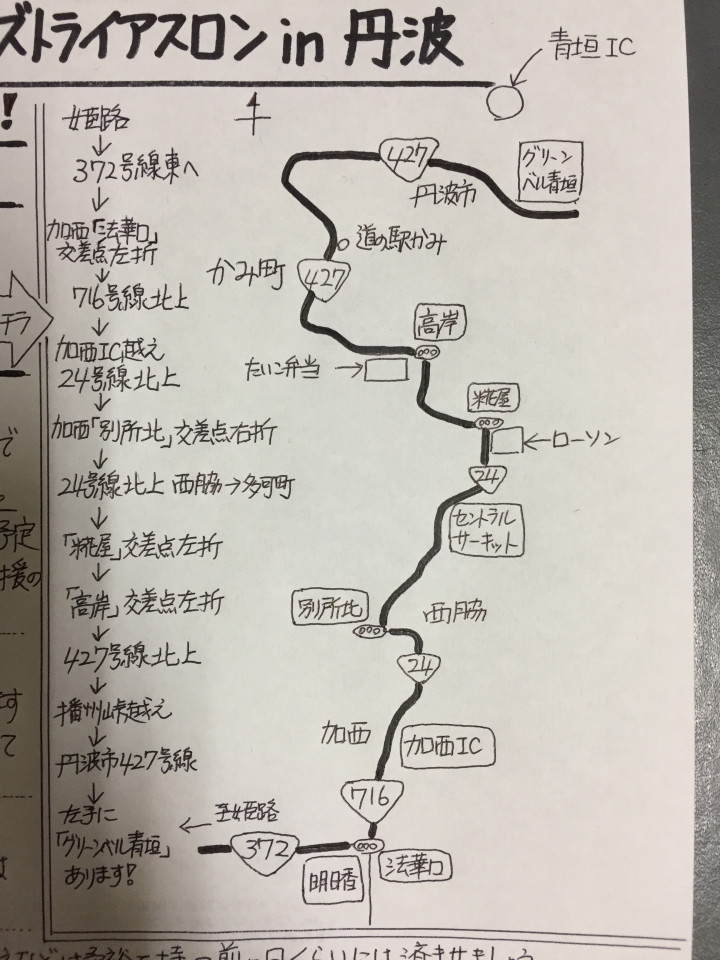 ズトライアスロン in 丹波
青垣IC
!
姫路
↓
372号線東へ
↓
加西「法華口」
交差点左折
↓
716号線北上
↓
加西IC越え
24号線北上
↓
加西「別所北」交差点右折
↓
24号線北上 西脇→多可町
↓
「糀屋」交差点左折
↓
「高岸」交差点左折
↓
427号線北上
↓
播州峠越え
↓
丹波市427号線
↓
左手に
「グリーンベル青垣」
あります!
427
グリーン
ベル青垣
丹波市
道の駅かみ
かみ町
427
高岸
たいこ弁当 →
糀屋
←ローソン
24
セントラル
サーキット
別所北
西脇
24
加西
加西IC
716
← 至姫路
372
明日香
法華口
チラ
で
予定
援の
ます
て
は